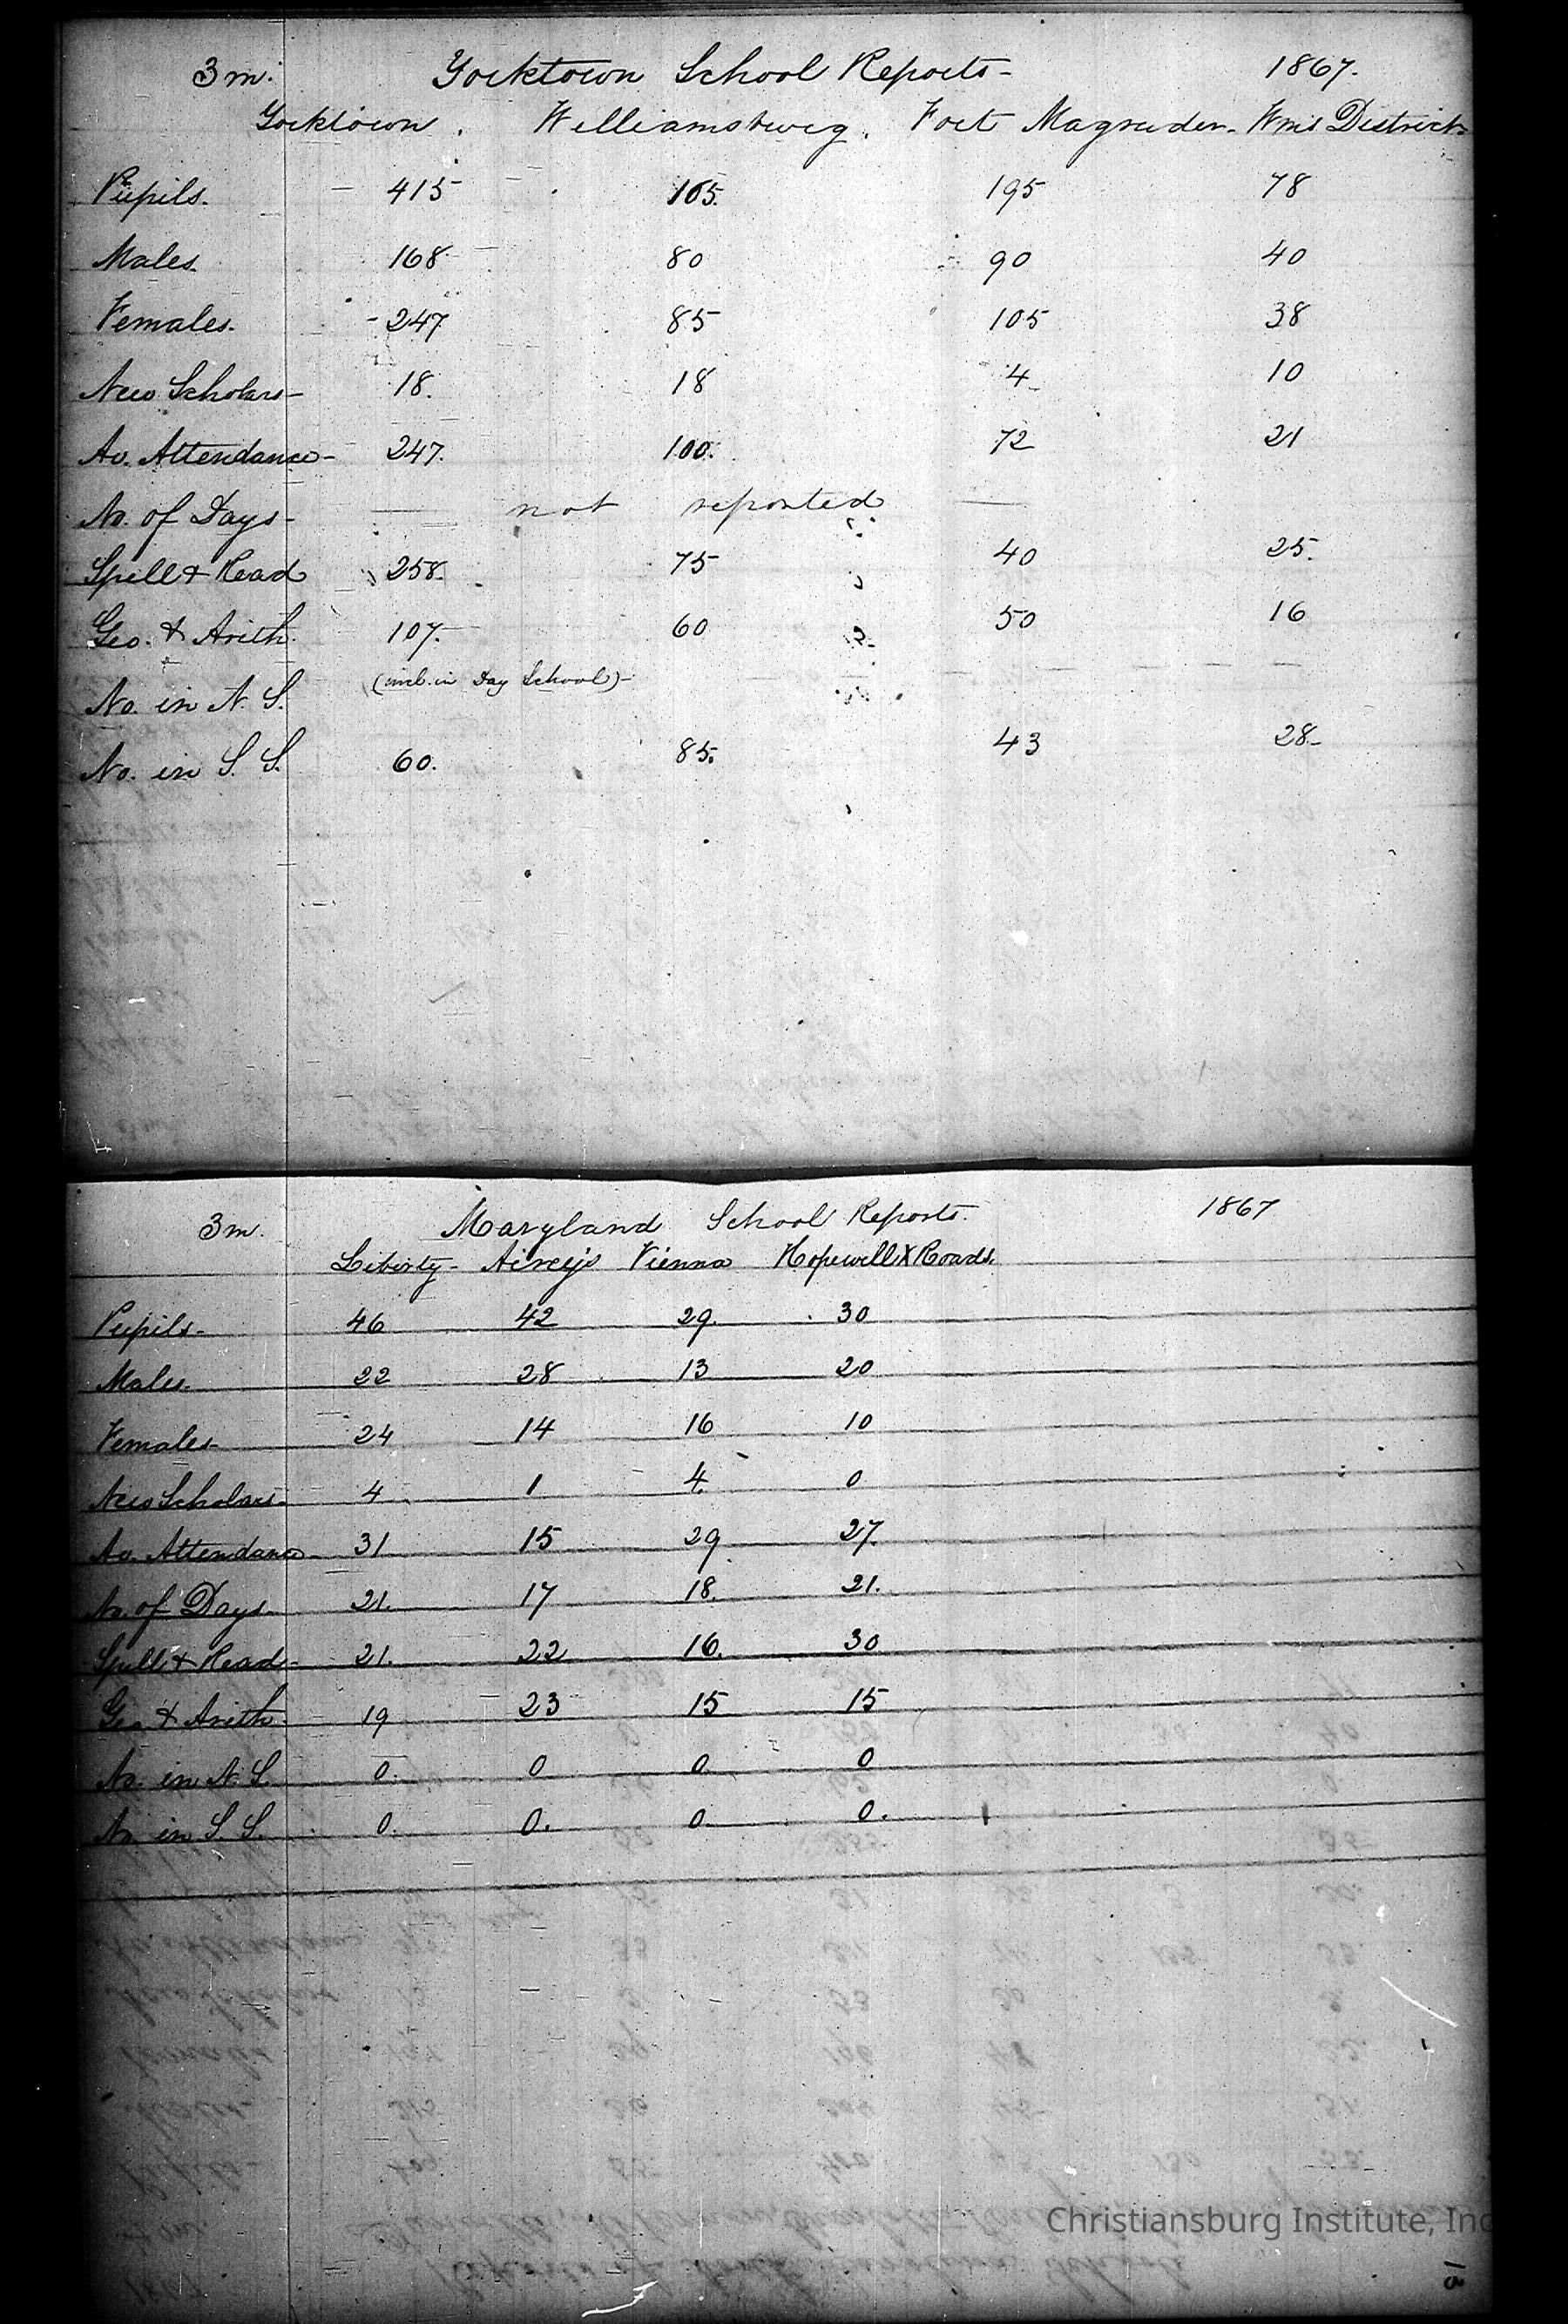 3 m. Yorktown School Reports- 1867.
Yorktown. Williamsburg. Fort Magruder- Wms District-
Pupils. - 415 - 165. 195 78
Males. 168 80 90 40
Females. - 247 85 105 38
New Scholars- 18. 18 4 10
Av. Attendance- 247. 100. 72 21
No. of Days- — not reported —
Spell & Read 258. 75 40 25.
Geo. & Arith. 107. 60 50 16
No. in N. S. (incl. in Day School)-
No. in S. S. 60. 85. 43 28-
3 m. Maryland School Reports. 1867
Liberty- Airey's Vienna Hopewell X Roads.
Pupils- 46 42 29. 30
Males. 22 28 13 20
Females- 24 14 16 10
New Scholars- 4 1 4 0
Av. Attendance- 31 15 29 27.
No. of Days- 21. 17 18. 21.
Spell & Read- 21. 22 16. 30
Geo. & Arith. 19 23 15 15
No. in N. S. 0. 0 0 0
No. in S. S. 0. 0. 0. 0.
Christiansburg Institute, Inc
13